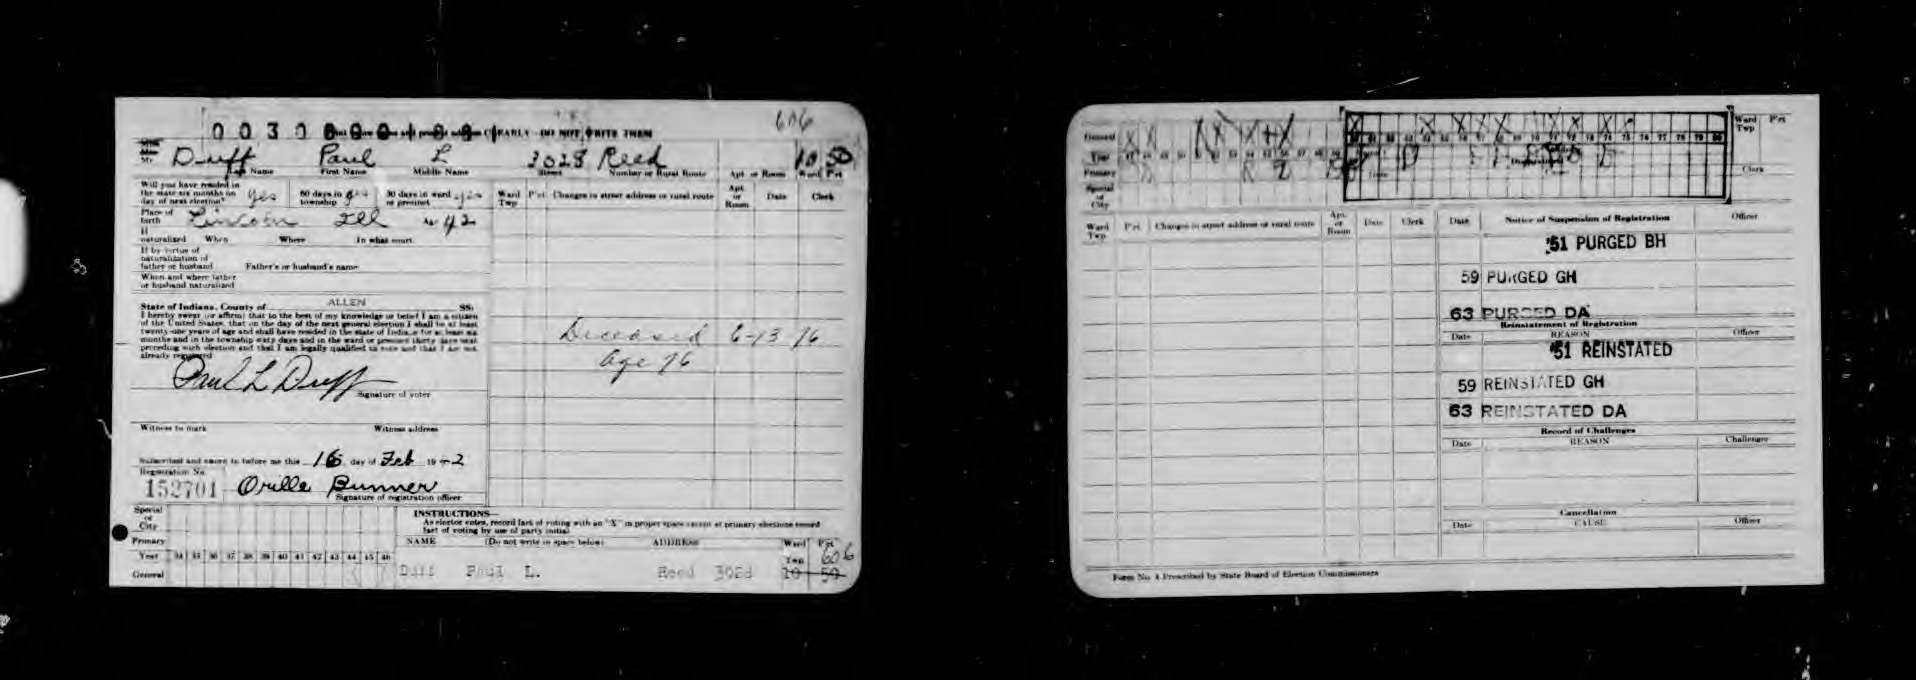 606
CLEARLY—DO NOT WRITE THEM
Mr. Duff Paul L 3028 Reed 10 50
Last Name First Name Middle Name Street Number or Rural Route Apt. or Room Ward Pct
Will you have resided in the state six months on day of next election? yes 60 days in township yes 30 days in ward or precinct yes
Ward Twp P'ct. Changes in street address or rural route Apt. or Room Date Clerk
Place of birth Lincoln Ill Age 42
If naturalized When Where In what court
If by virtue of naturalization of father or husband Father's or husband's name
When and where father or husband naturalized
State of Indiana, County of ALLEN SS:
I hereby swear (or affirm) that to the best of my knowledge or belief I am a citizen
of the United States, that on the day of the next general election I shall be at least
twenty-one years of age and shall have resided in the state of Indiana for at least six
months and in the township sixty days and in the ward or precinct thirty days next
preceding such election and that I am legally qualified to vote and that I am not
already registered
Deceased 6-13 76
Age 76
Paul L Duff
Signature of voter
Witness to mark Witness address
Subscribed and sworn to before me this 16 day of Feb 19 42
Registration No.
152701 Orilla Bunner
Signature of registration officer
INSTRUCTIONS—
As elector votes, record fact of voting with an "X" in proper space except at primary elections record
fact of voting by use of party initial
Special or City
Primary
Year 34 35 36 37 38 39 40 41 42 43 44 45 46
General
NAME (Do not write in space below) ADDRESS Ward Twp Pct
606
Duff Paul L. Reed 3028 10 50
General
Year
Primary
Special or City
Ward Twp P'ct
Clerk
Ward Twp P'ct. Changes in street address or rural route Apt. or Room Date Clerk
Date Notice of Suspension of Registration Officer
'51 PURGED BH
59 PURGED GH
63 PURGED DA
Reinstatement of Registration
Date REASON Officer
'51 REINSTATED
59 REINSTATED GH
63 REINSTATED DA
Record of Challenges
Date REASON Challenger
Cancellation
Date CAUSE Officer
Form No. 4 Prescribed by State Board of Election Commissioners